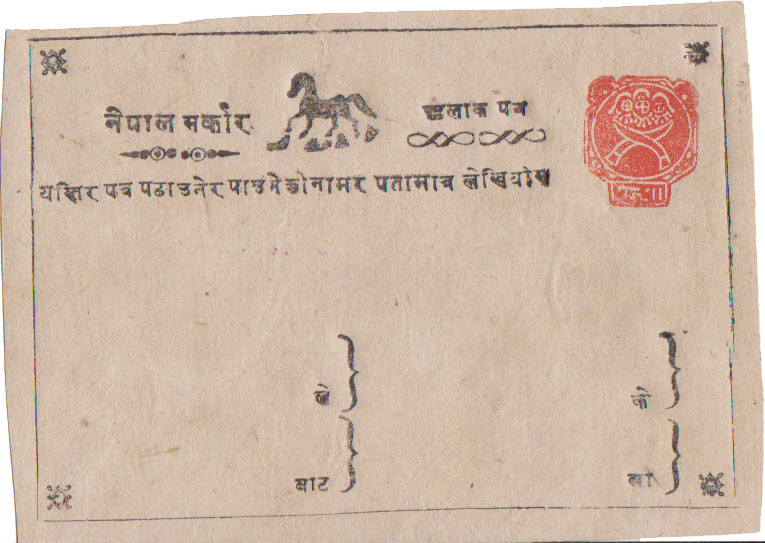 नेपाल सर्कार
हलाक पत्र
यस्तिर पत्र पठाउनेर पाउनेको नामर पतामात्र लेखियोस
ले
के
बाट
लाई